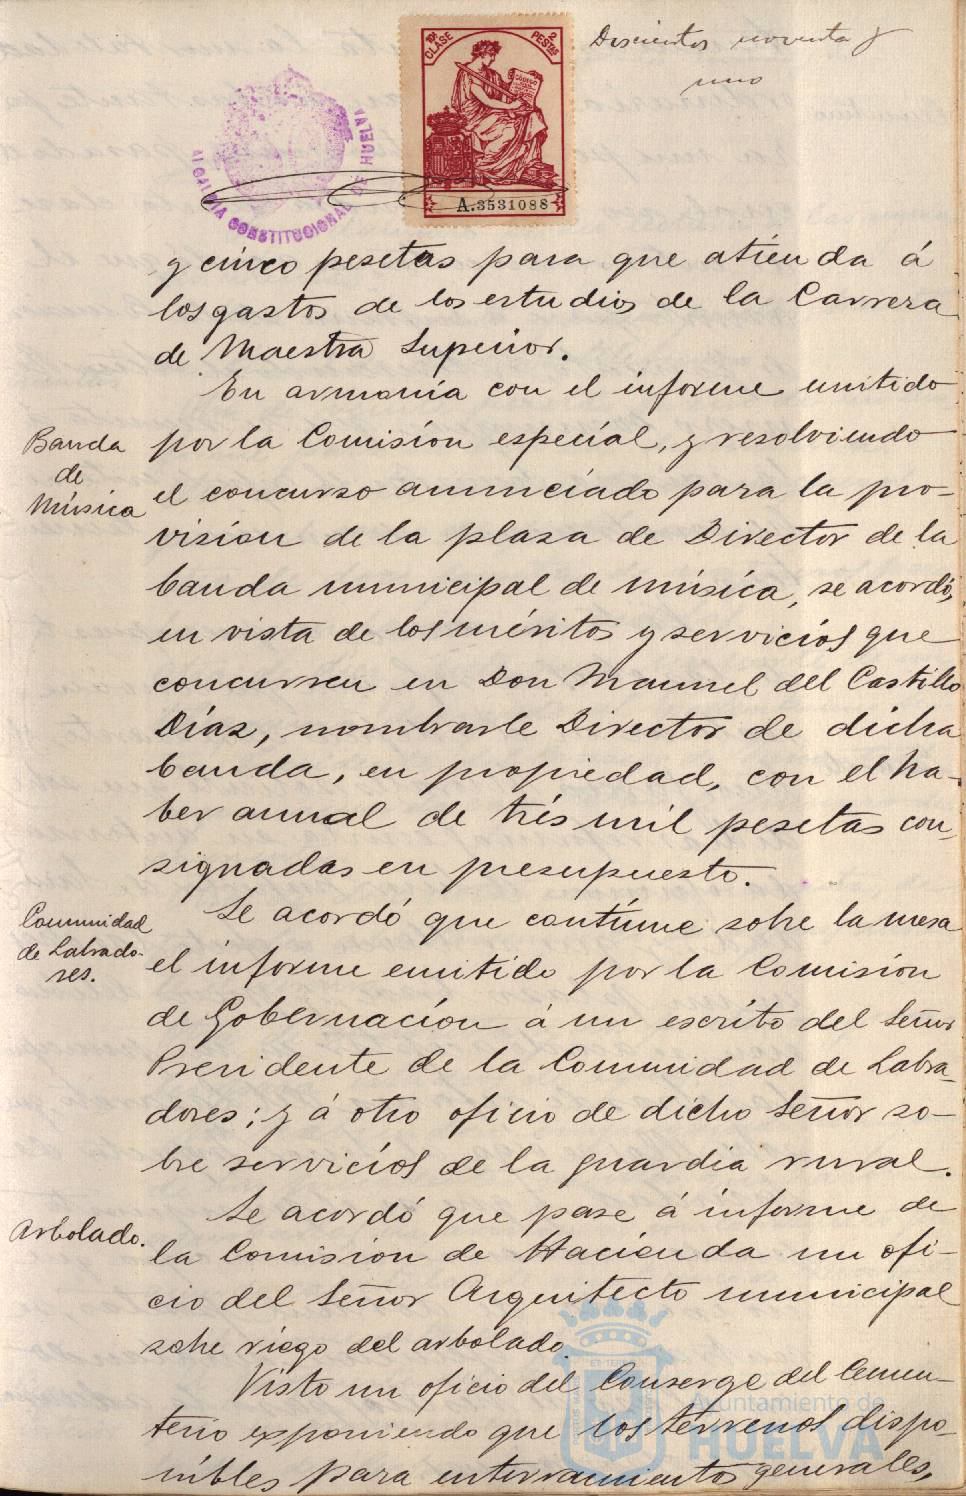 Doscientos noventa y
uno
10ª CLASE
2 PESTAS
CÓDIGO
A.3531088
ALCALDIA CONSTITUCIONAL DE HUELVA
y cinco pesetas para que atienda á
los gastos de los estudios de la Carrera
de Maestra Superior.
En armonía con el informe emitido
Banda
de
Música
por la Comisión especial, y resolviendo
el concurso anunciado para la pro-
visión de la plaza de Director de la
banda municipal de música, se acordó,
en vista de los méritos y servicios que
concurren en Don Manuel del Castillo
Díaz, nombrarle Director de dicha
banda, en propiedad, con el ha-
ber anual de trés mil pesetas con-
signadas en presupuesto.
Comunidad
de Labrado-
res.
Se acordó que contínue sobre la mesa
el informe emitido por la Comisión
de Gobernación á un escrito del Señor
Presidente de la Comunidad de Labra-
dores; y á otro oficio de dicho Señor so-
bre servicios de la guardia rural.
Arbolado.
Se acordó que pase á informe de
la Comisión de Hacienda un ofi-
cio del Señor Arquitecto municipal
sobre riego del arbolado.
Visto un oficio del Conserge del Cemen-
terio exponiendo que los terrenos dispo-
nibles para enterramientos generales,
Ayuntamiento de
HUELVA